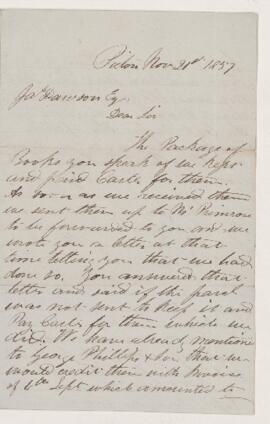 Pictou Nov 21st 1857
Jas Dawson Esq
Dear Sir
The Package of
Books you speak of we kept
and paid Carter for them.
As soon as we received them
we sent them up to Mr Primrose
to be forwarded to you and we
wrote you a letter at that
time letting you that we had
done so. You answered that
letter and said if the parcel
was not sent to keep it and
Pay Carter for them which we
did. We have already mentioned
to George Phillips & Son that we
would credit them with Invoice
of 11th Sept which amounted to